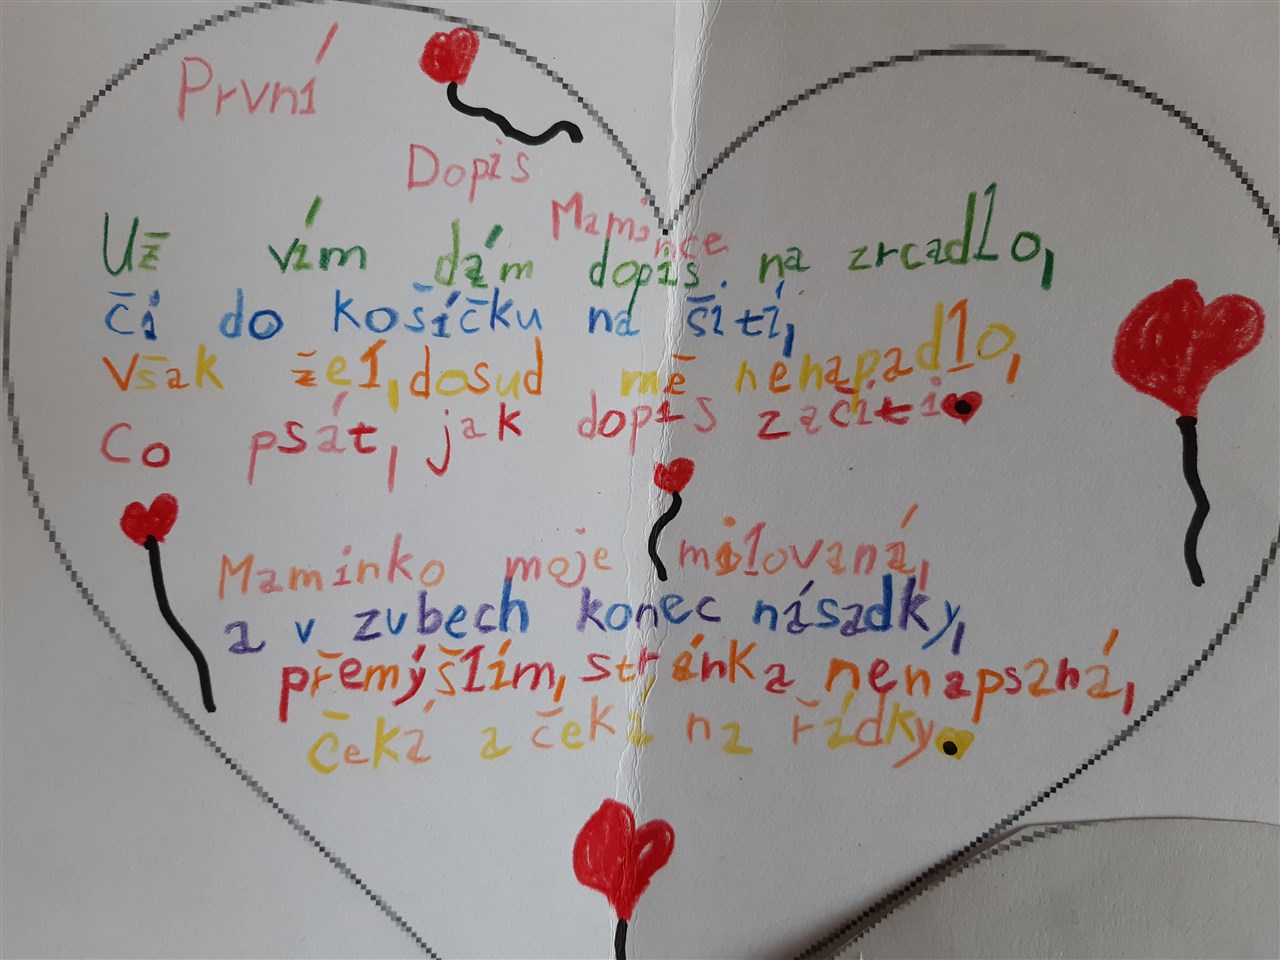 První
Dopis
Mamince
Už vím dám dopis na zrcadlo,
či do košíčku na šití,
však žel, dosud mě nenapadlo,
Co psát, jak dopis začíti.
Maminko moje milovaná,
a v zubech konec násadky,
přemýšlím, stránka nenapsaná,
čeká a čeká na řádky.